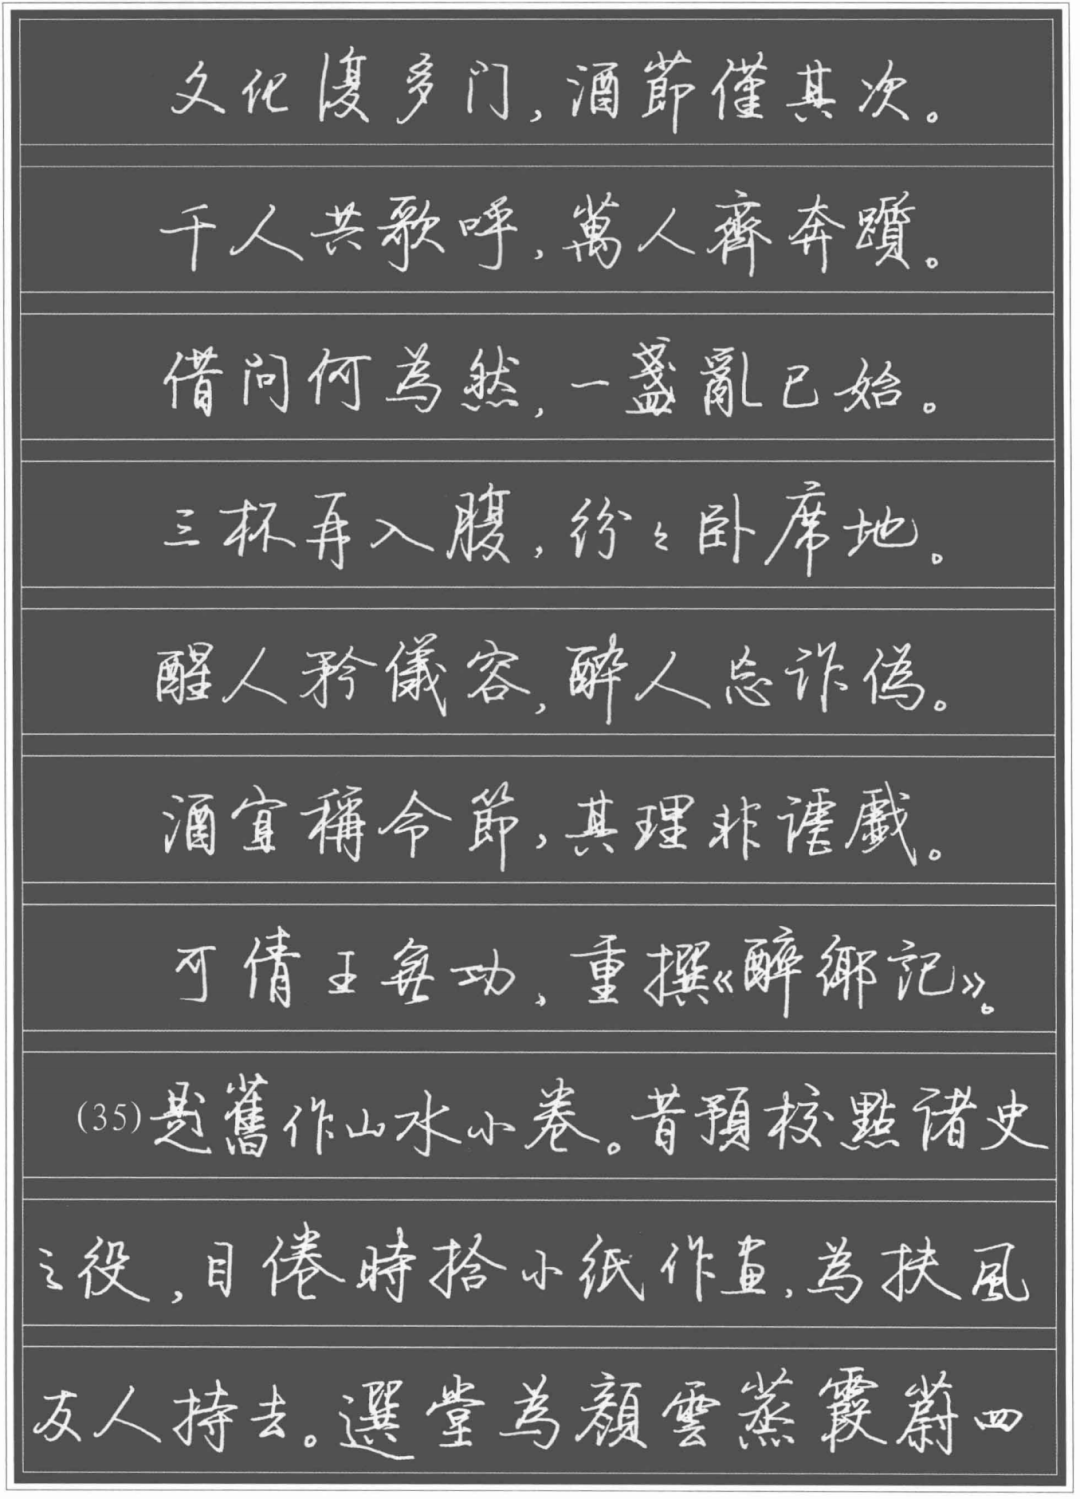 文化復多门，酒節僅其次。
千人共歌呼，萬人齊奔躓。
借问何為然，一盞亂已始。
三杯再入腹，纷々卧席地。
醒人矜儀容，醉人忘诈偽。
酒宜稱令節，其理非謔戲。
可倩王無功，重撰《醉鄉記》。
(35)題舊作山水小卷。昔預校點諸史
之役，目倦時拾小纸作畫，為扶風
友人持去。選堂為顏雲蒸霞蔚四